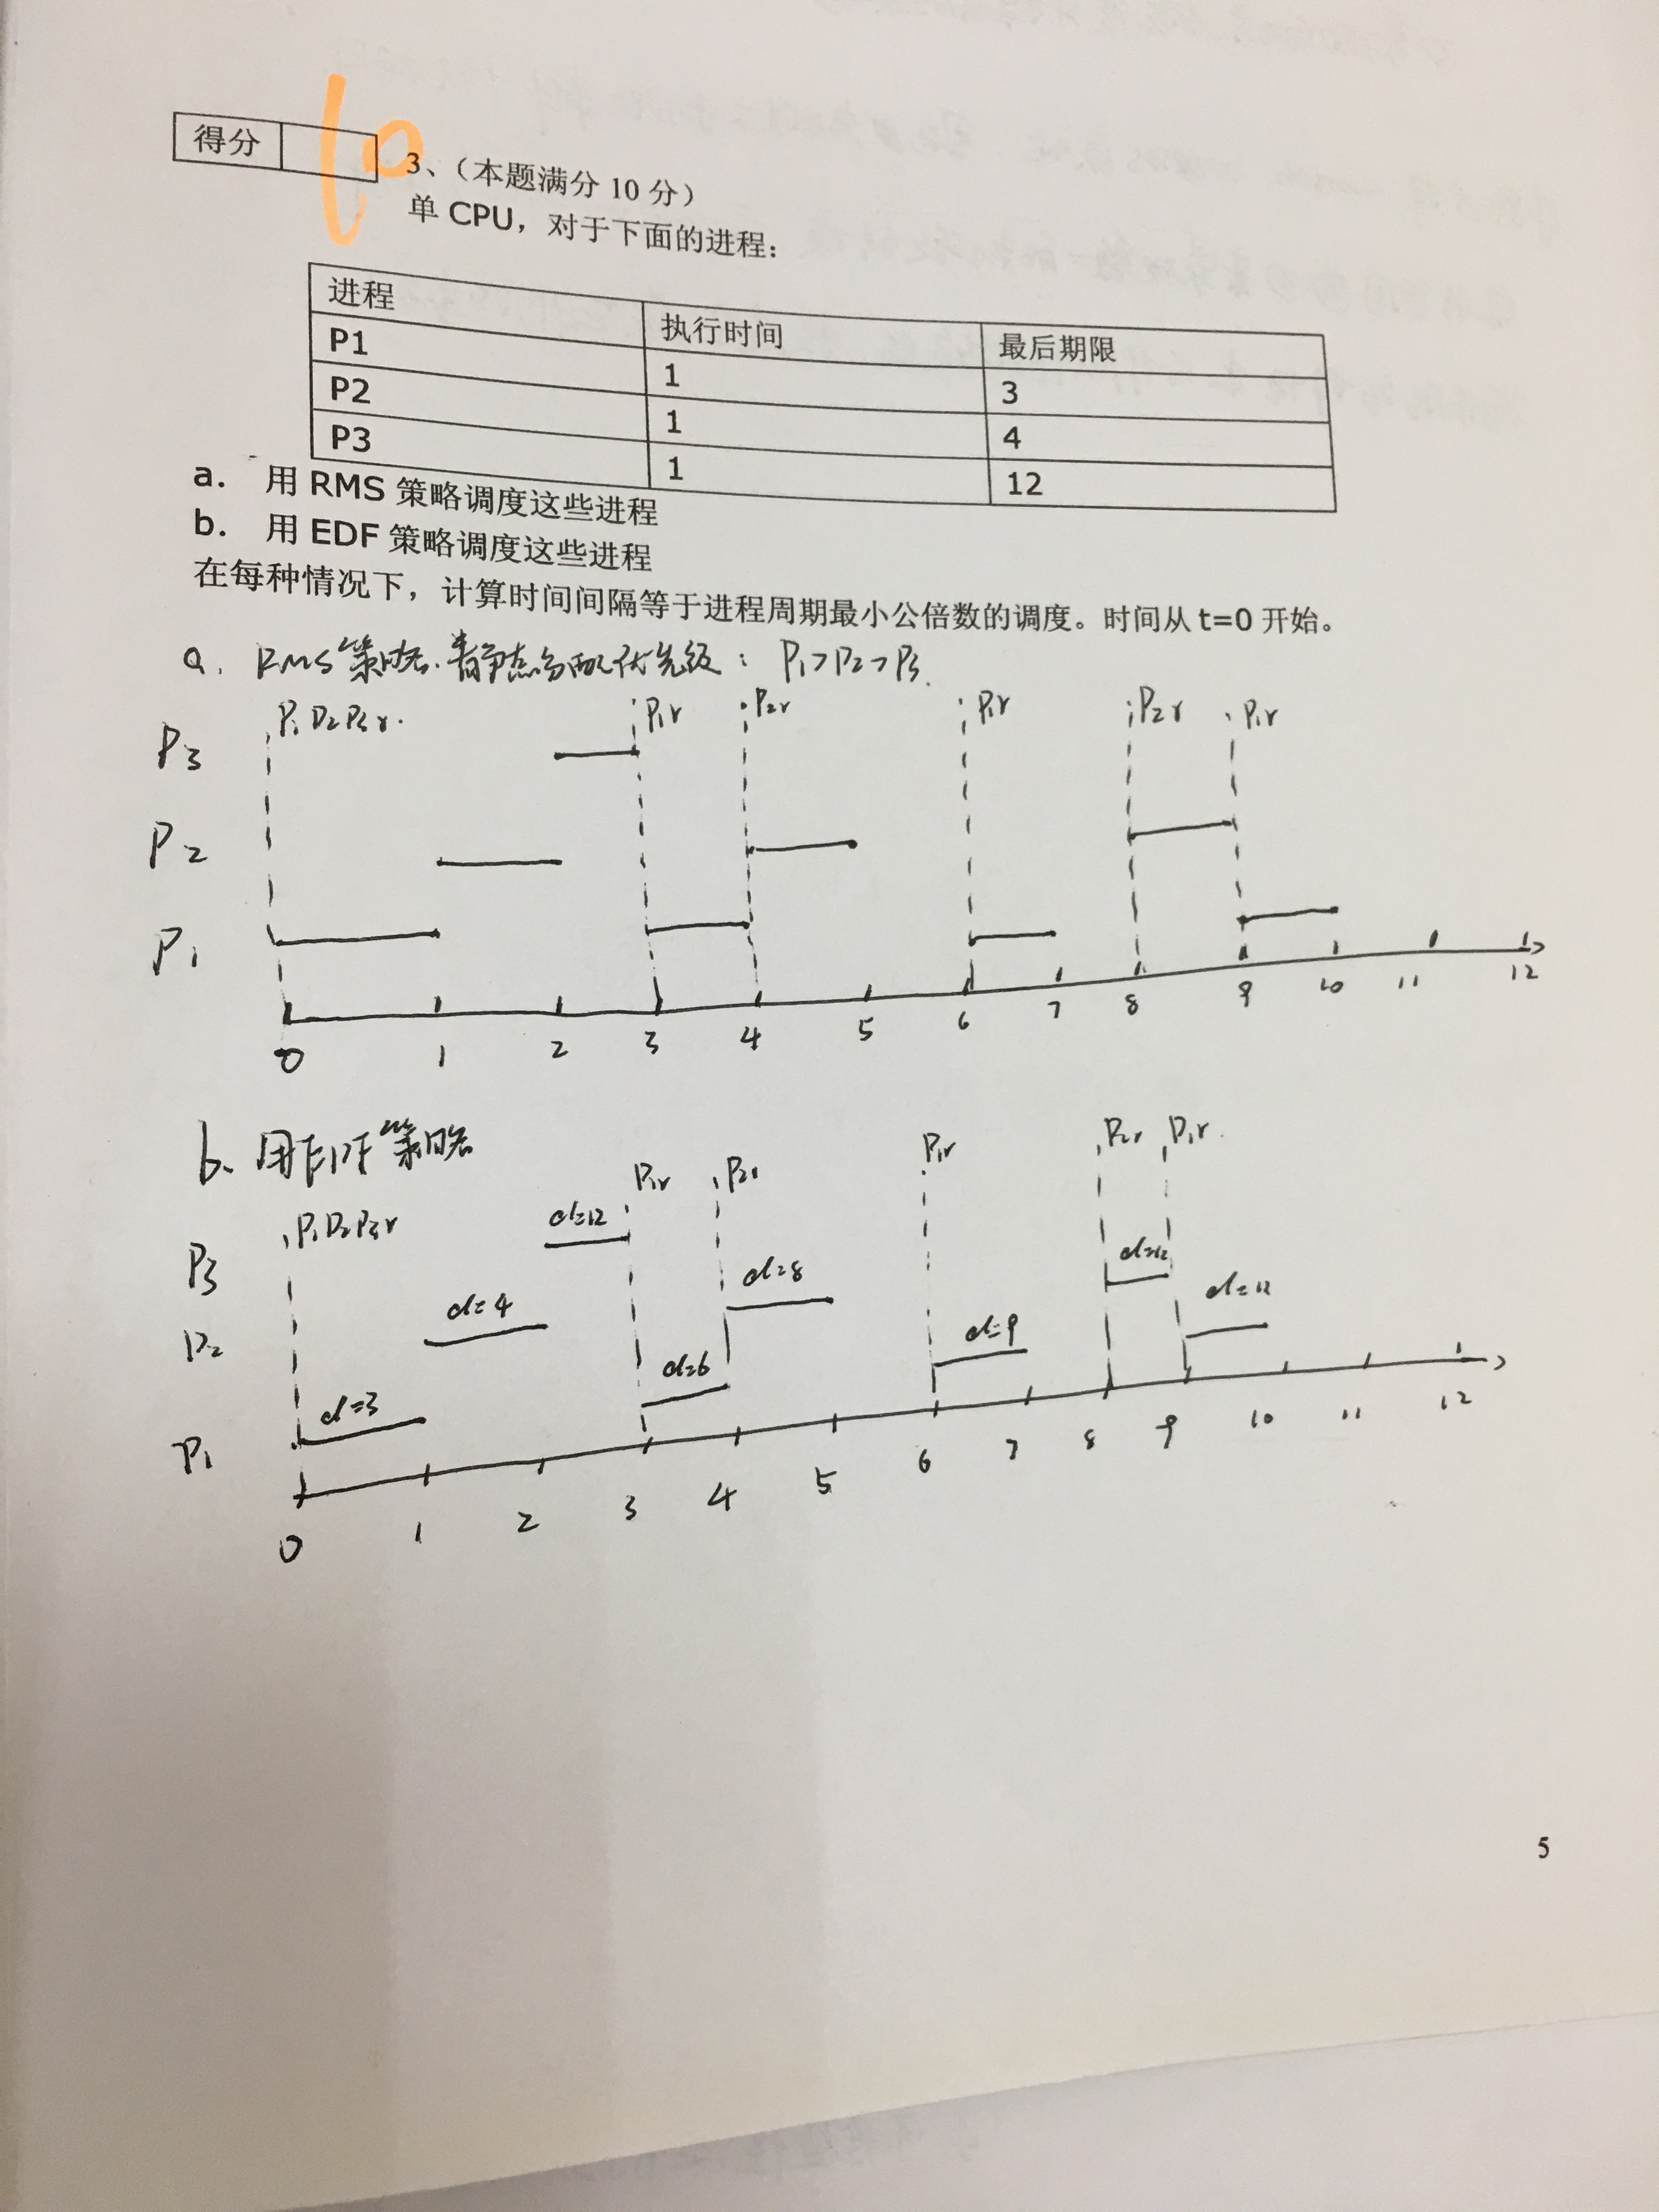 得分
10
3、（本题满分 10 分）
单 CPU，对于下面的进程：
进程 执行时间 最后期限
P1 1 3
P2 1 4
P3 1 12
a. 用 RMS 策略调度这些进程
b. 用 EDF 策略调度这些进程
在每种情况下，计算时间间隔等于进程周期最小公倍数的调度。时间从 t=0 开始。
a. RMS策略. 静态分配优先级： P1>P2>P3.
P1P2P3r. P1r P2r P1r P2r P1r
P3
P2
P1
0 1 2 3 4 5 6 7 8 9 10 11 12
b. 用EDF策略
P1P2P3r P1r P2r P1r P2r P1r.
P3 d=12 d=12
P2 d=4 d=8 d=12
P1 d=3 d=6 d=9
0 1 2 3 4 5 6 7 8 9 10 11 12
5